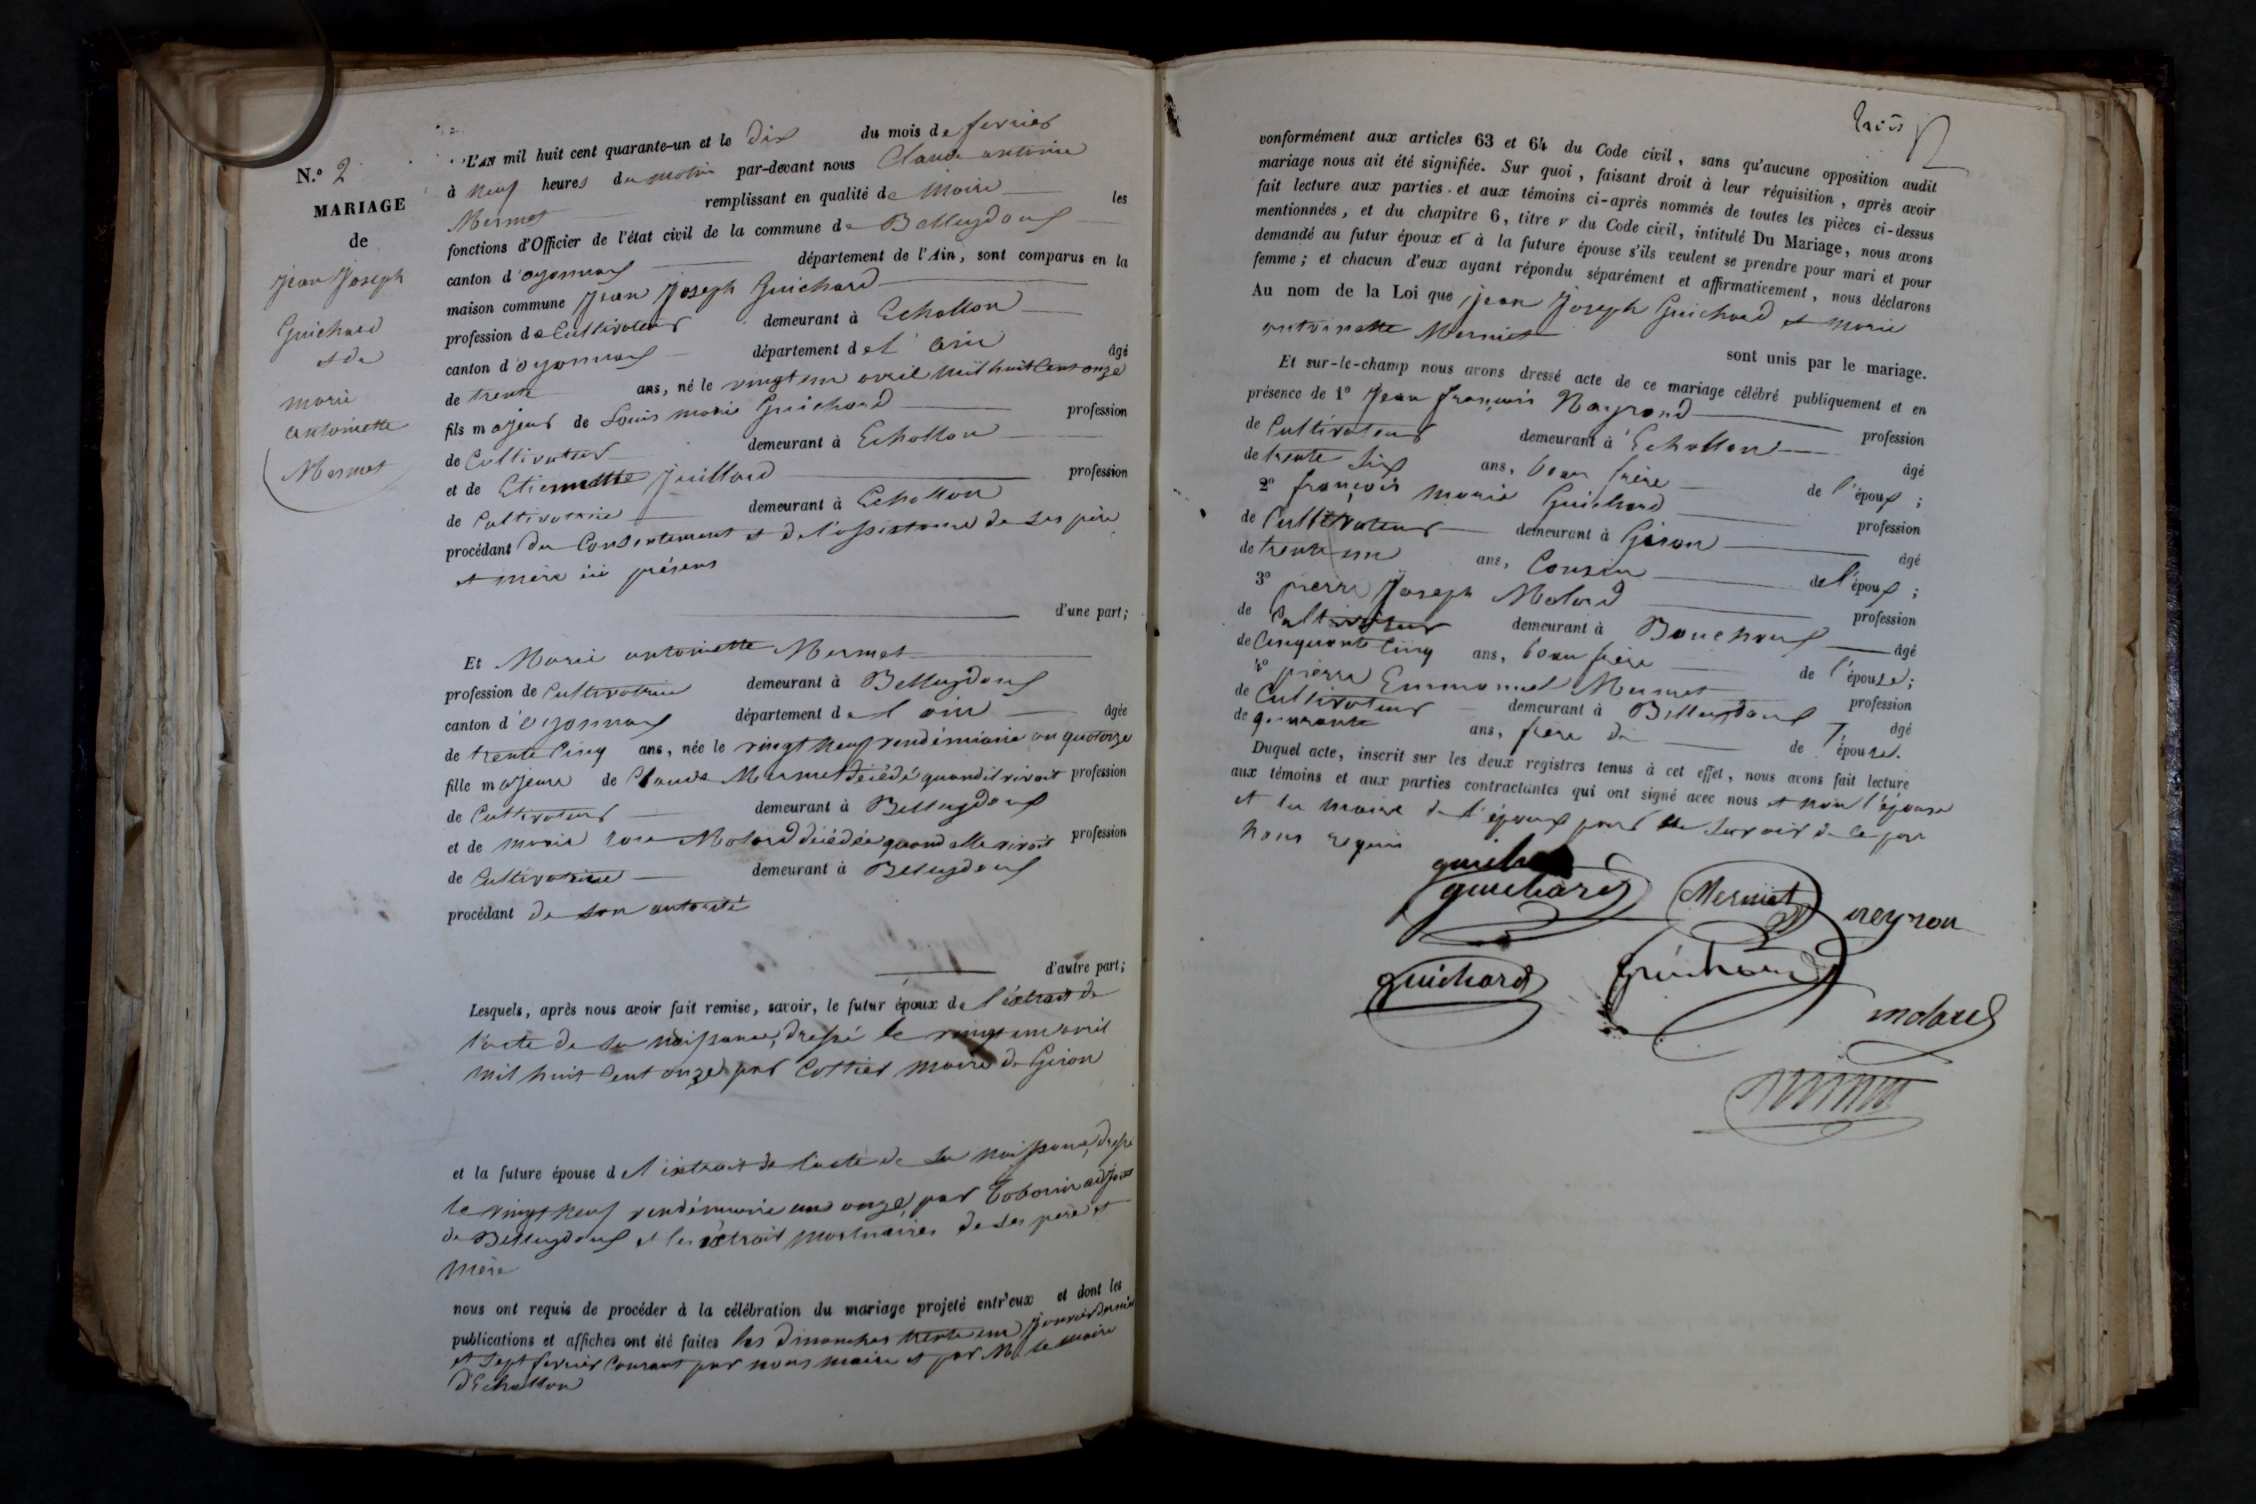 N.º 2
MARIAGE
de
Jean Joseph
Guichard
et de
marie
antoinette
Mermet
L'AN mil huit cent quarante-un et le dix du mois de fevrier
à neuf heures du matin par-devant nous Claude antoine
Mermet remplissant en qualité de Maire les
fonctions d'Officier de l'état civil de la commune de Belleydoux
canton d'oyonnax département de l'Ain, sont comparus en la
maison commune Jean Joseph Guichard
profession de Cultivateur demeurant à Echallon
canton d'oyonnax département de l'ain âgé
de trente ans, né le vingt un avril mil huit Cent onze
fils majeur de Louis marie Guichard profession
de Cultivateur demeurant à Echallon
et de Etiennette Juillard profession
de Cultivatrice demeurant à Echallon
procédant du Consentement et de l'assistance de ses père
et mère ici présens
d'une part;
Et Marie antoinette Mermet
profession de Cultivatrice demeurant à Belleydoux
canton d'oyonnax département de l'ain âgée
de trente Cinq ans, née le vingt neuf vendémiaire an quatorze
fille majeure de Claude Mermet décédé quand il vivoit profession
de Cultivateur demeurant à Belleydoux
et de marie rose Molard décédée quand elle vivoit profession
de Cultivatrice demeurant à Belleydoux
procédant de son autorité
d'autre part;
Lesquels, après nous avoir fait remise, savoir, le futur époux de l'extrait de
l'acte de sa naissance, dressé le vingt un avril
mil huit Cent onze par Cottier Maire de Giron
et la future épouse de l'extrait de l'acte de sa naissance, dressé
le vingt neuf vendémiaire an onze, par adjoint
de Belleydoux et les extrait mortuaires de ses père et
mère
nous ont requis de procéder à la célébration du mariage projeté entr'eux et dont les
publications et affiches ont été faites les dimanches trente un janvier dernier
et sept fevrier Courant par nous maire et par Mr le maire
d'Echallon
trois
conformément aux articles 63 et 64 du Code civil, sans qu'aucune opposition audit
mariage nous ait été signifiée. Sur quoi, faisant droit à leur réquisition, après avoir
fait lecture aux parties et aux témoins ci-après nommés de toutes les pièces ci-dessus
mentionnées, et du chapitre 6, titre v du Code civil, intitulé Du Mariage, nous avons
demandé au futur époux et à la future épouse s'ils veulent se prendre pour mari et pour
femme; et chacun d'eux ayant répondu séparément et affirmativement, nous déclarons
Au nom de la Loi que Jean Joseph Guichard et Marie
antoinette Mermet sont unis par le mariage.
Et sur-le-champ nous avons dressé acte de ce mariage célébré publiquement et en
présence de 1º Jean françois Neyrond profession
de Cultivateur demeurant à Echallon âgé
de trente six ans, beau frère de l'époux;
2º françois Marie Guichard profession
de Cultivateur demeurant à Giron âgé
de trente un ans, Cousin de l'époux;
3º pierre Joseph Molard profession
de Cultivateur demeurant à Bouchoux âgé
de Cinquante Cinq ans, beau frère de l'épouse;
4º pierre Emmanuel Mermet profession
de Cultivateur demeurant à Belleydoux âgé
de quarante ans, frère de de l'épouse.
Duquel acte, inscrit sur les deux registres tenus à cet effet, nous avons fait lecture
aux témoins et aux parties contractantes qui ont signé avec nous et non l'épouse
et la mère de l'époux pour ne savoir de ce par
nous requis
guichard
guichard Mermet neyron
guichard Guichard
molard